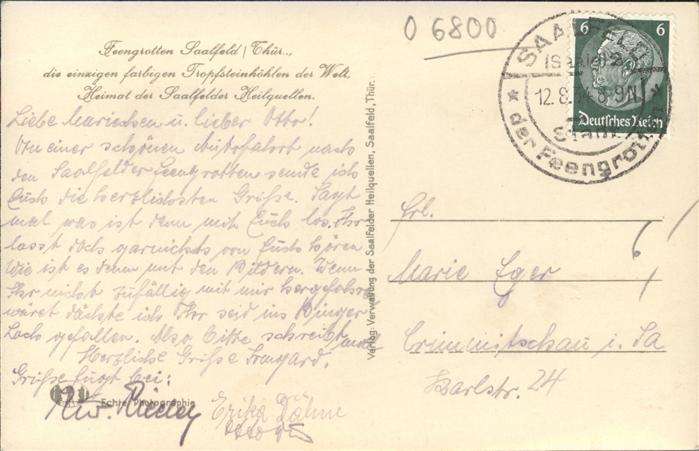 O 6800
Feengrotten Saalfeld / Thür.,
die einzigen farbigen Tropfsteinhöhlen der Welt.
Heimat der Saalfelder Heilquellen.
Liebe Mariechen u. lieber Otto!
Von einer schönen Autofahrt nach
den Saalfelder Feengrotten sende ich
Euch die herzlichsten Grüße. Sagt
mal was ist denn mit Euch los. Ihr
lasst doch garnichts von Euch hören
Wie ist es denn mit den Bildern. Wenn
Ihr nicht zufällig mit mir hergefahren
wäret dächte ich Ihr seid ins Binger
Loch gefallen. Also bitte schreibt
Herzliche Grüße Irmgard.
Grüße fügt bei:
Echte Photographie
Erika Dähne
Verlag: Verwaltung der Saalfelder Heilquellen, Saalfeld, Thür.
SAALFELD
(Saale) 2
12.8.
der Feengrotten
6 6
Deutsches Reich
Frl.
Marie Eger
Crimmitschau i. Sa
Karlstr. 24